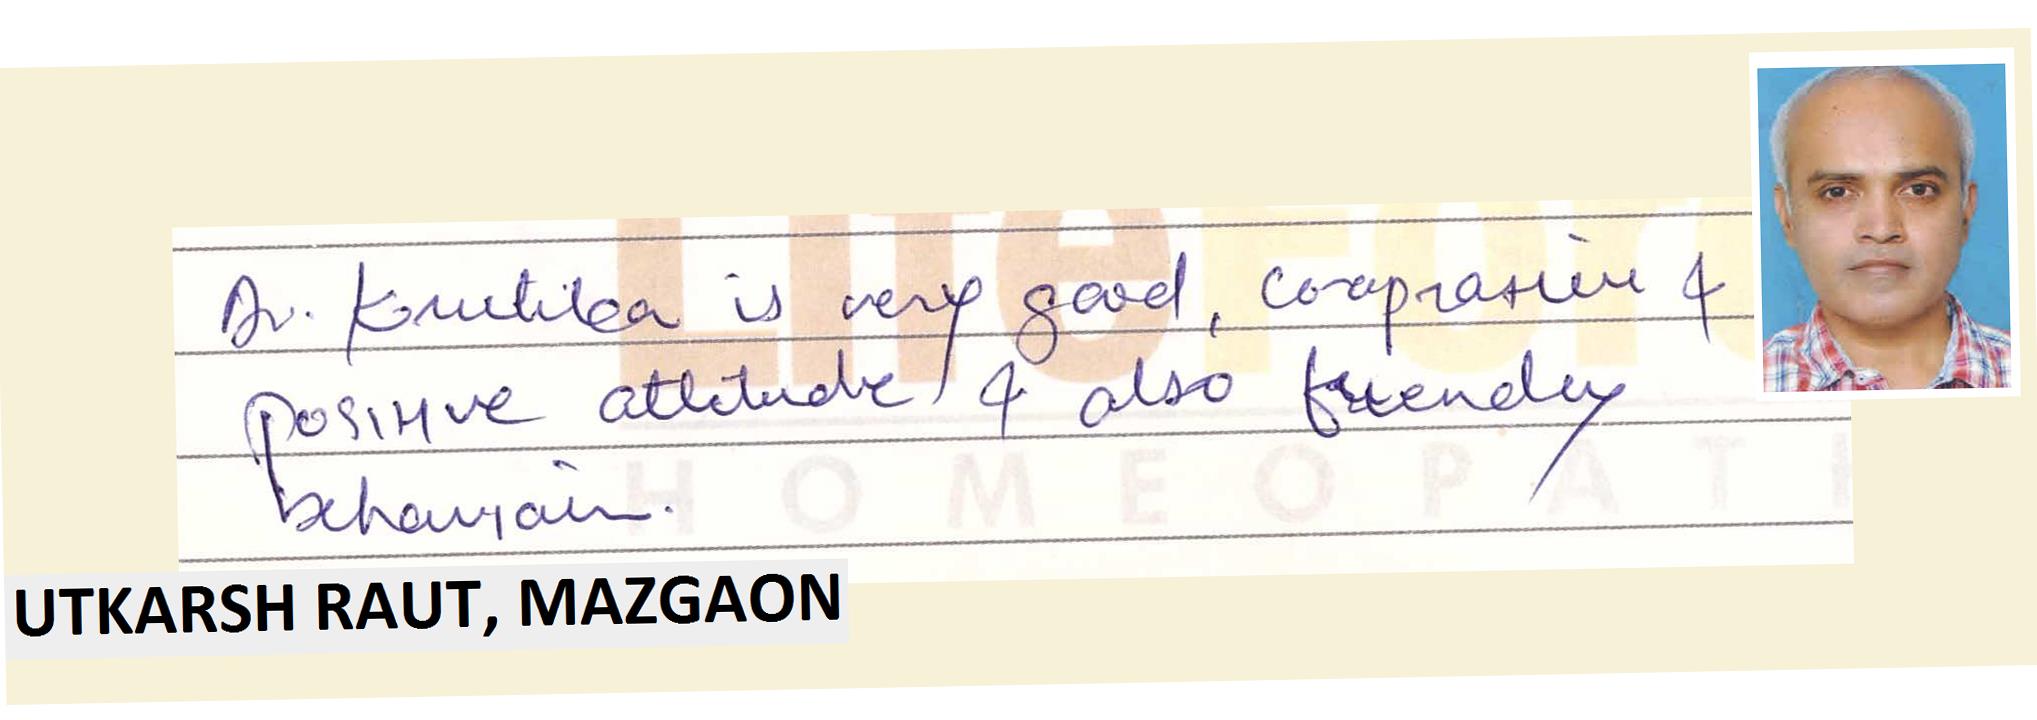 LifeFor
Dr. Krutika is very good, co-oprative &
positive attitude, & also friendly
behaviour.
HOMEOPATH
UTKARSH RAUT, MAZGAON